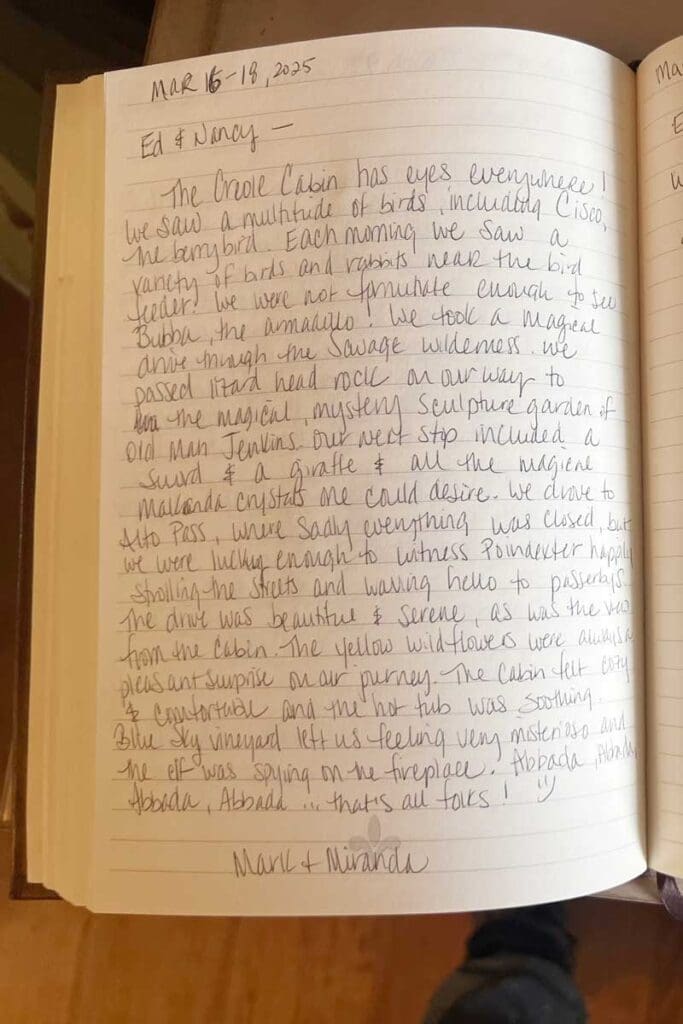 MAR 16-18, 2025
Ed & Nancy —
The Creole Cabin has eyes everywhere!
We saw a multitude of birds, including Cisco,
the berrybird. Each morning we saw a
variety of birds and rabbits near the bird
feeder. We were not fortunate enough to see
Bubba, the armadillo! We took a magical
drive through the Savage wilderness. We
passed lizard head rock on our way to
the magical, mystery sculpture garden of
Old Man Jenkins. Our next stop included a
sword & a giraffe & all the
crystals one could desire. We drove to
Alto Pass, where sadly everything was closed, but
we were lucky enough to witness Poindexter happily
strolling the streets and waving hello to passerbys.
The drive was beautiful & serene, as was the view
from the cabin. The yellow wildflowers were always a
pleasant surprise on our journey. The cabin felt cozy
& comfortable and the hot tub was soothing.
Blue Sky vineyard left us feeling very misterioso and
the elf was spying on the fireplace. Abbada, Abbada,
Abbada, Abbada ... that's all folks!
Mark + Miranda
Ma
E
W